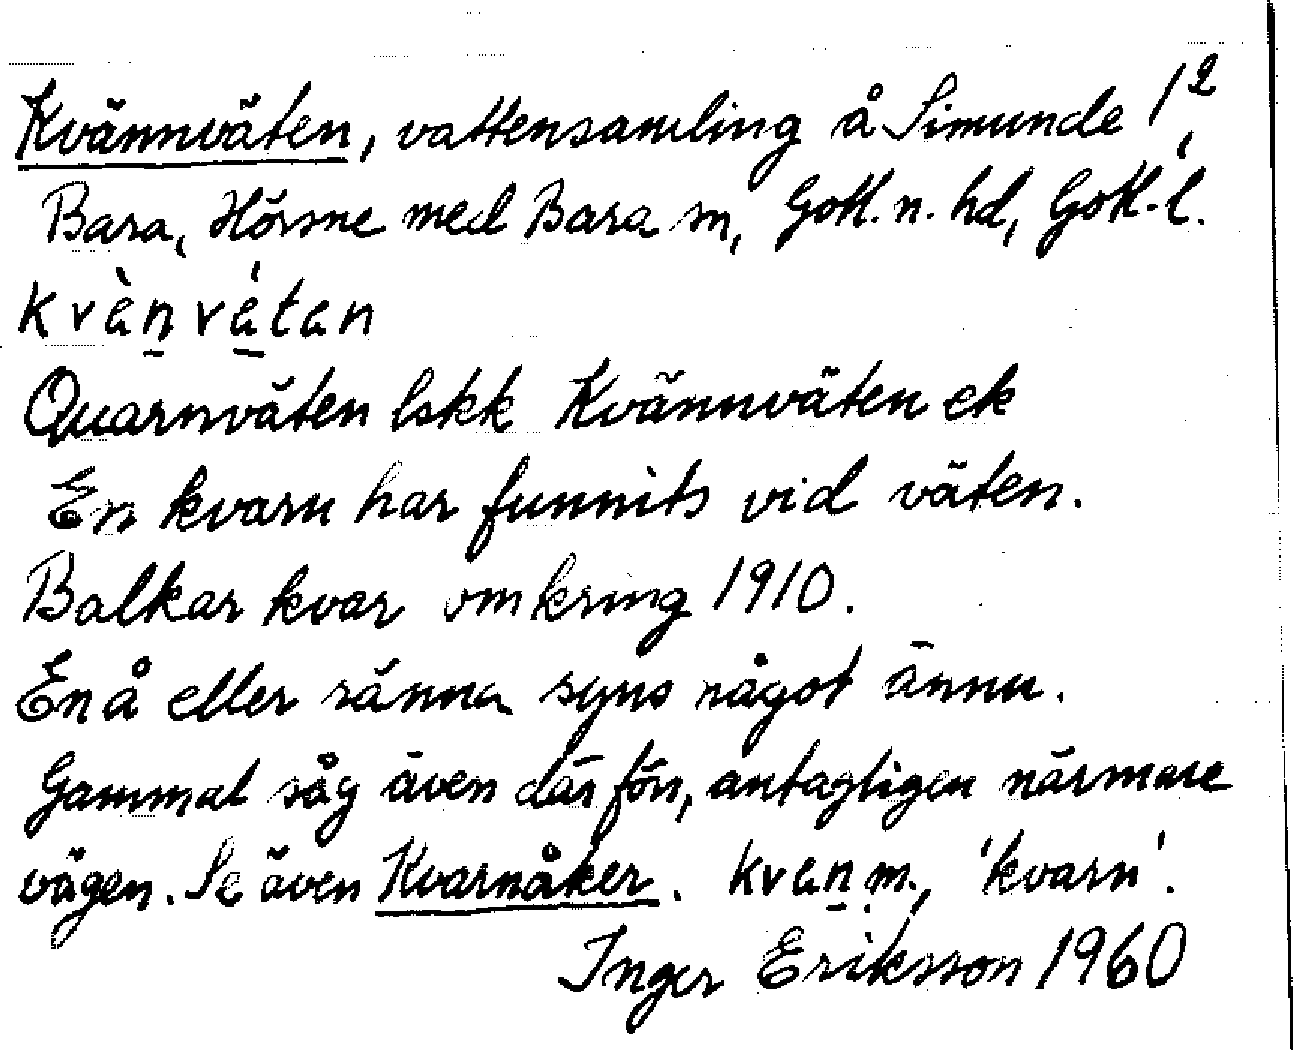 Kvännväten, vattensamling å Simunde 1²,
Bara, Hörsne med Bara sn, Gotl. n. hd, Gotl. l.
kvä̀nvä́tan
Quarnväten lskk Kvännväten ek
En kvarn har funnits vid väten.
Balkar kvar omkring 1910.
En å eller ränna syns något ännu.
Gammal såg även där förr, antagligen närmare
vägen. Se även Kvarnåker. kvän m., 'kvarn'.
Inger Eriksson 1960